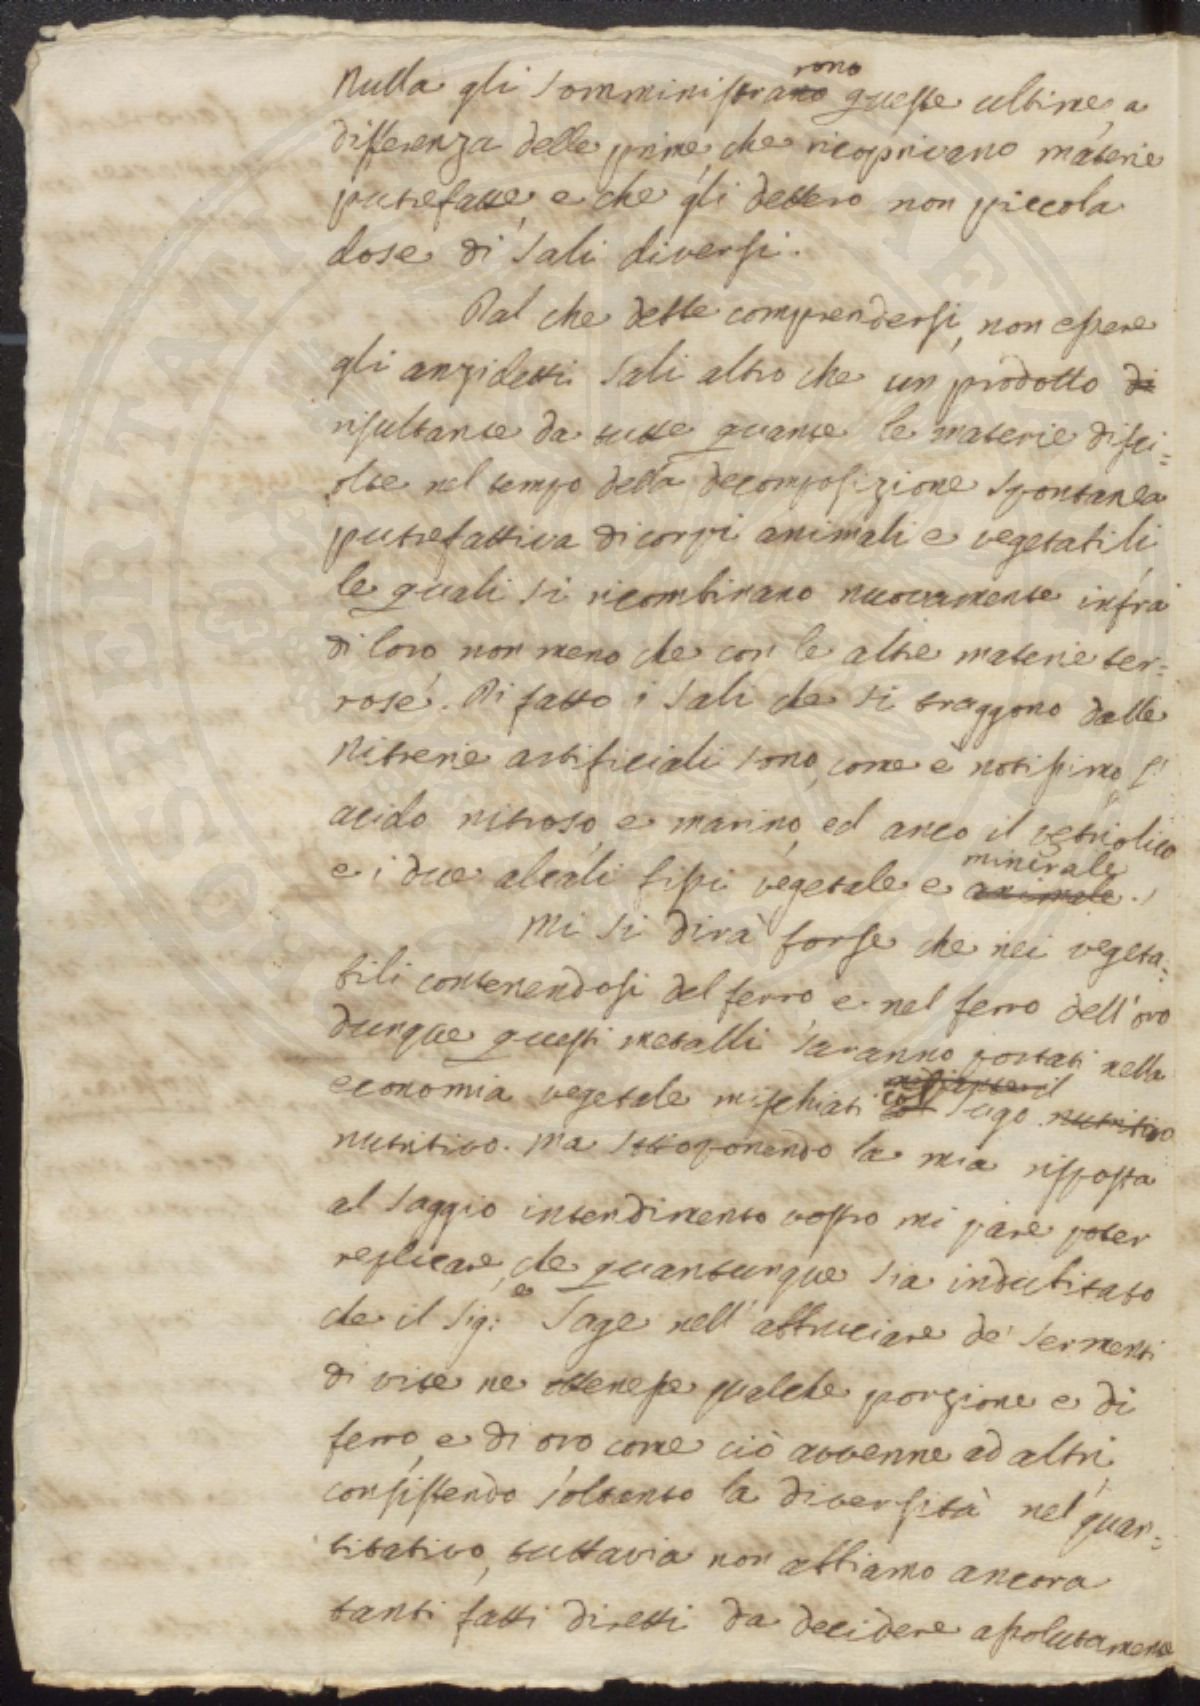 Nulla gli somministra~~no~~rono queste ultime, a
differenza delle prime, che ricoprivano materie
putrefatte, e che gli dettero non piccola
dose di Sali diversi.
Dal che debbe comprendersi, non essere
gli anzidetti Sali altro che un prodotto ~~di~~
risultante da tutte quante le materie disci=
olte nel tempo della decomposizione spontanea
putrefattiva di corpi animali e vegetabili,
le quali si ricombinano nuovamente infra
di loro, non meno che con le altre materie ter=
rose. Di fatto i Sali che si traggono dalle
Nitrerie artificiali sono, come è notissimo, l'
acido nitroso, e marino, ed anco il vetriolico
e i due alcali fissi vegetale e ~~animale~~ minerale.
Mi si dirà forse che nei vegeta=
bili contenendosi del ferro, e nel ferro dell'oro
dunque questi metalli saranno portati nella
economia vegetale mischiati ~~mediante il~~ col sugo ~~nutritivo~~
nutritivo. Ma sottoponendo la mia risposta
al saggio intendimento vostro mi pare poter
replicare, che quantunque sia indubitato
che il Sig:e Sage nell'abbruciare de' Sermenti
di vite ne ottenesse qualche porzione e di
ferro, e di oro, come ciò avvenne ad altri,
consistendo soltanto la diversità nel quan=
titativo, tuttavia non abbiamo ancora
tanti fatti diretti da decidere assolutamente
SOSPERITATI